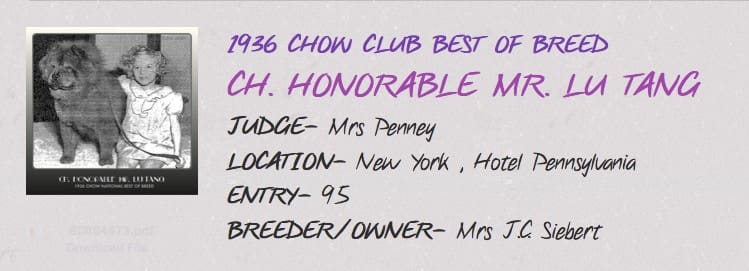 1936 CHOW CLUB BEST OF BREED
CH. HONORABLE MR. LU TANG
JUDGE- Mrs Penney
LOCATION- New York , Hotel Pennsylvania
ENTRY- 95
BREEDER/OWNER- Mrs J.C. Siebert
CH. HONORABLE MR. LU TANG
1936 CHOW NATIONAL BEST OF BREED
Download File